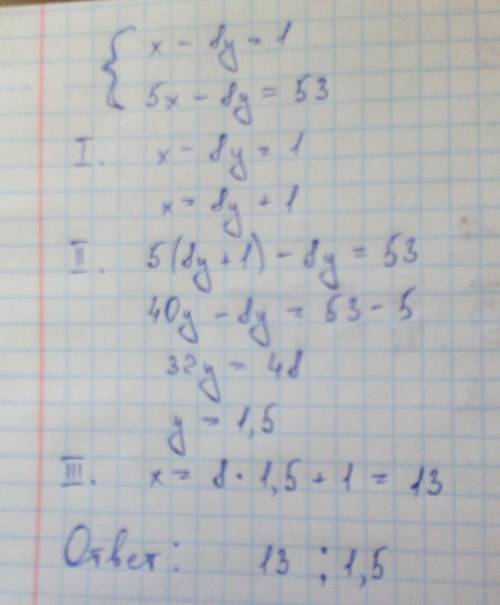 { x - 8y = 1
5x - 8y = 53
I. x - 8y = 1
x = 8y + 1
II. 5(8y + 1) - 8y = 53
40y - 8y = 53 - 5
32y = 48
y = 1,5
III. x = 8 · 1,5 + 1 = 13
Ответ: 13 ; 1,5